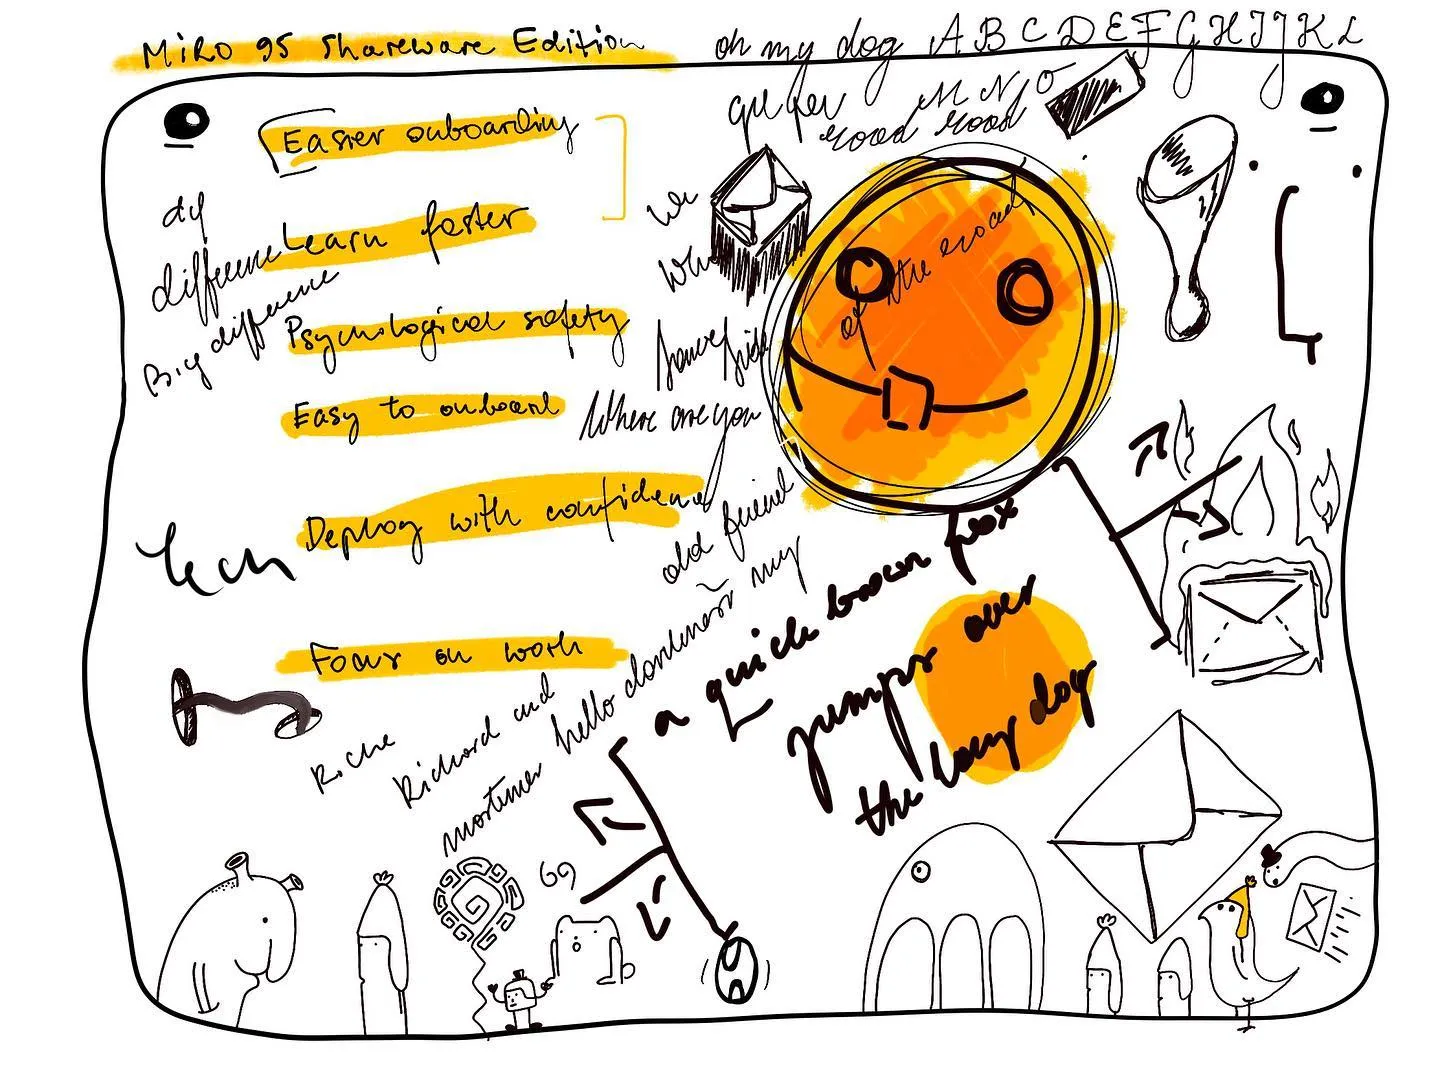 Miro 95 Shareware Edition
oh my dog A B C D E F G H I J K L
M N O
road road
Easier onboarding
Learn faster
difference
Big difference
of the road
Psychological safety
Easy to onboard
Where are you
Deploy with confidence
old friend
my
Tech
Focus on work
hello darkness
Richard and
mortimer
a quick brown fox
jumps over
the lazy dog
69